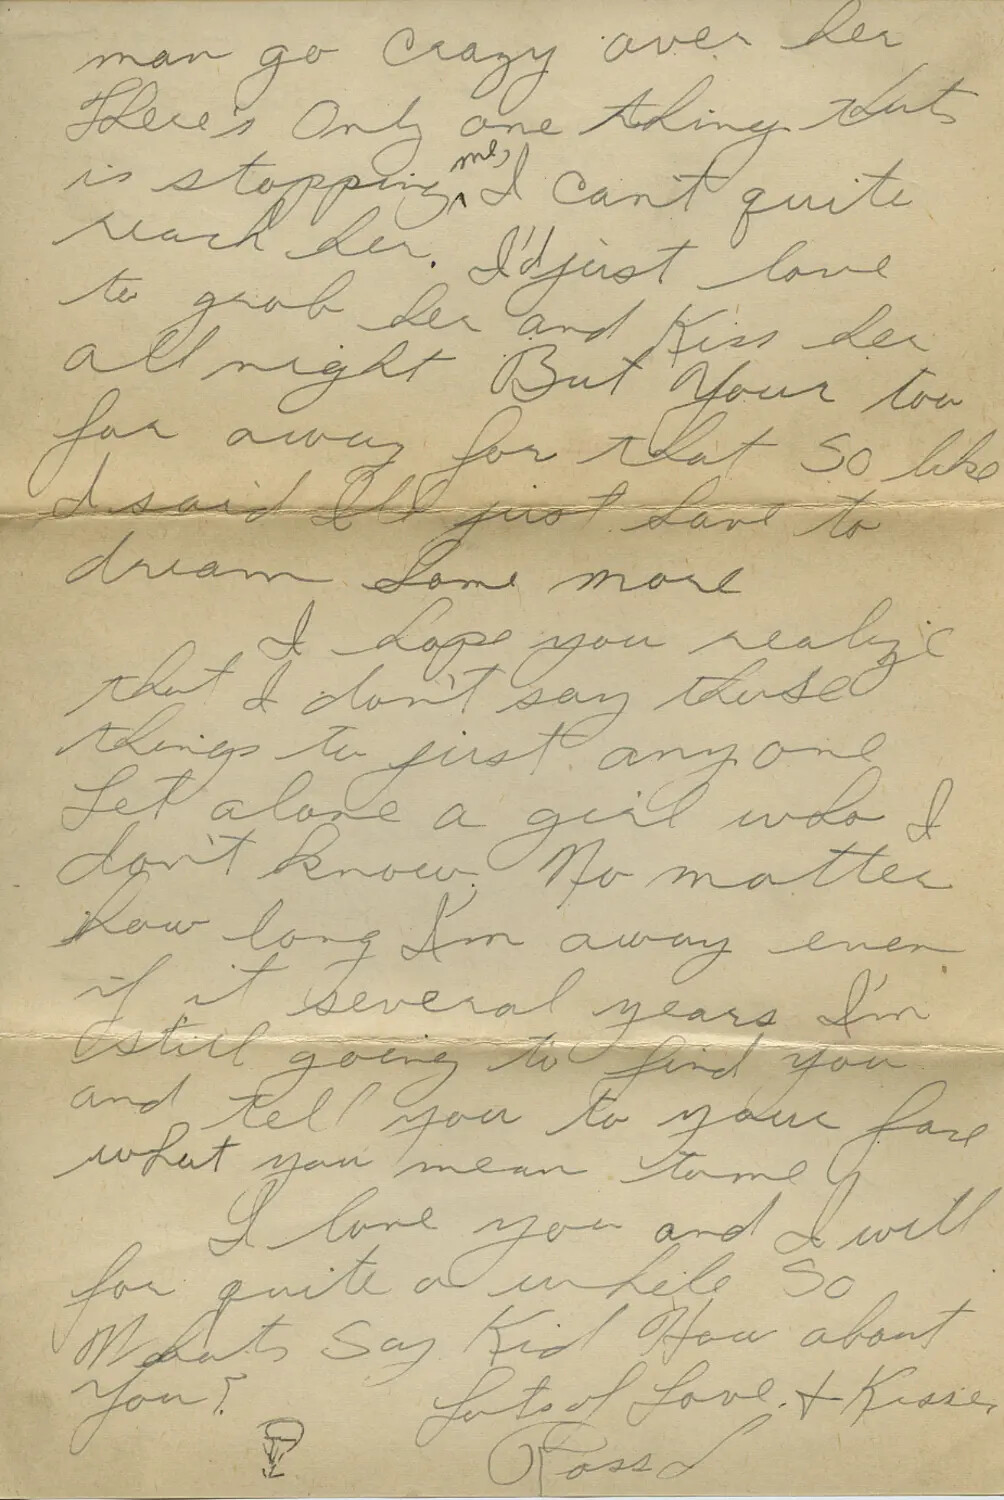 man go crazy over her
There's Only one thing thats
is stopping me, I can't quite
reach her. I'd just love
to grab her and Kiss her
all night But Your too
far away for that So like
I said I'll just have to
dream Some more
I hope you realize
that I don't say those
things to just anyone
Let alone a girl who I
don't know. No matter
how long I'm away even
if it several years I'm
still going to find you
and tell you to your face
what you mean to me
I love you and I will
for quite a while So
Whats Say Kid How about
You?
Lots of Love. + Kisses,
Ross